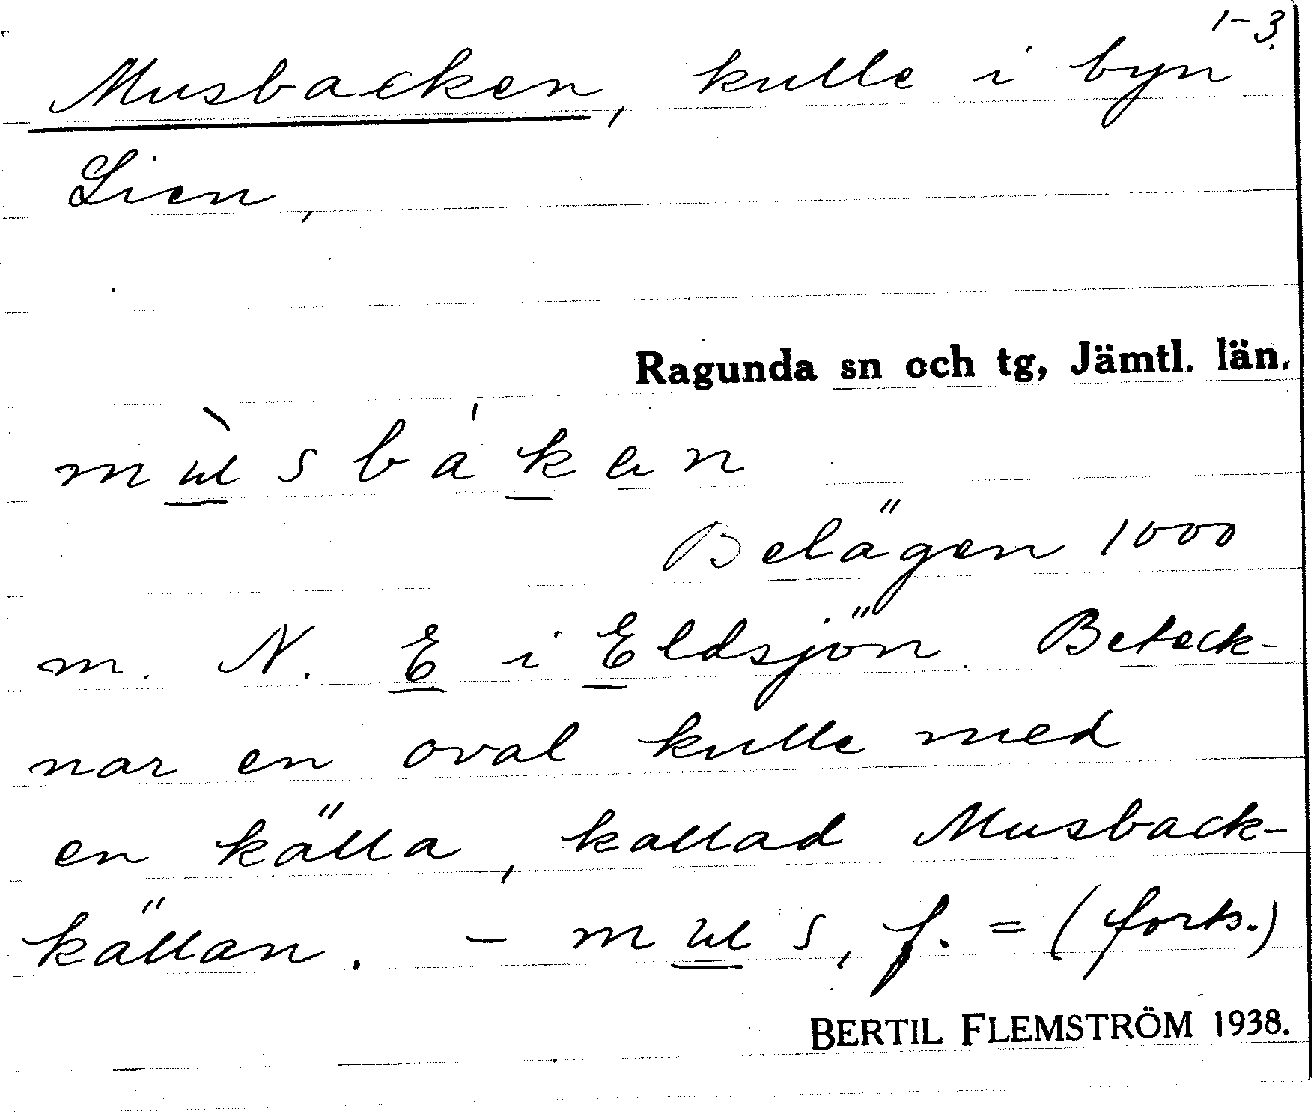 1-3.
Musbacken, kulle i byn
Lien,
Ragunda sn och tg, Jämtl. län.
Belägen 1000
m. N. E i Eldsjön. Beteck-
nar en oval kulle med
en källa, kallad Musback-
källan. - mus, f. = (forts.)
BERTIL FLEMSTRÖM 1938.